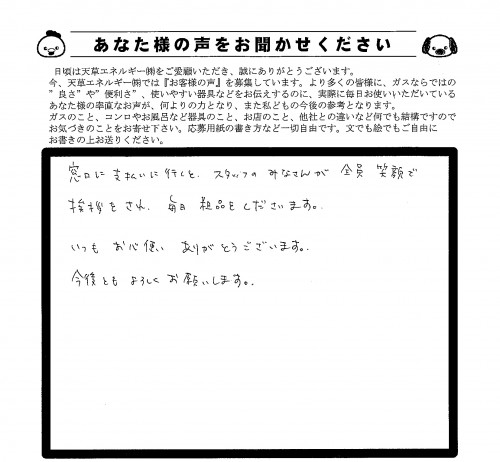 あなた様の声をお聞かせください
日頃は天草エネルギー㈱をご愛顧いただき、誠にありがとうございます。
今、天草エネルギー㈱では『お客様の声』を募集しています。より多くの皆様に、ガスならではの
”良さ”や”便利さ”、使いやすい器具などをお伝えするのに、実際に毎日お使いいただいている
あなた様の率直なお声が、何よりの力となり、また私どもの今後の参考となります。
ガスのこと、コンロやお風呂など器具のこと、お店のこと、他社との違いなど何でも結構ですので
お気づきのことをお寄せ下さい。応募用紙の書き方など一切自由です。文でも絵でもご自由に
お書きの上お送りください。
窓口に支払いに行くと、スタッフのみなさんが全員笑顔で
挨拶をされ、毎日粗品をくださいます。
いつもお心使いありがとうございます。
今後ともよろしくお願いします。